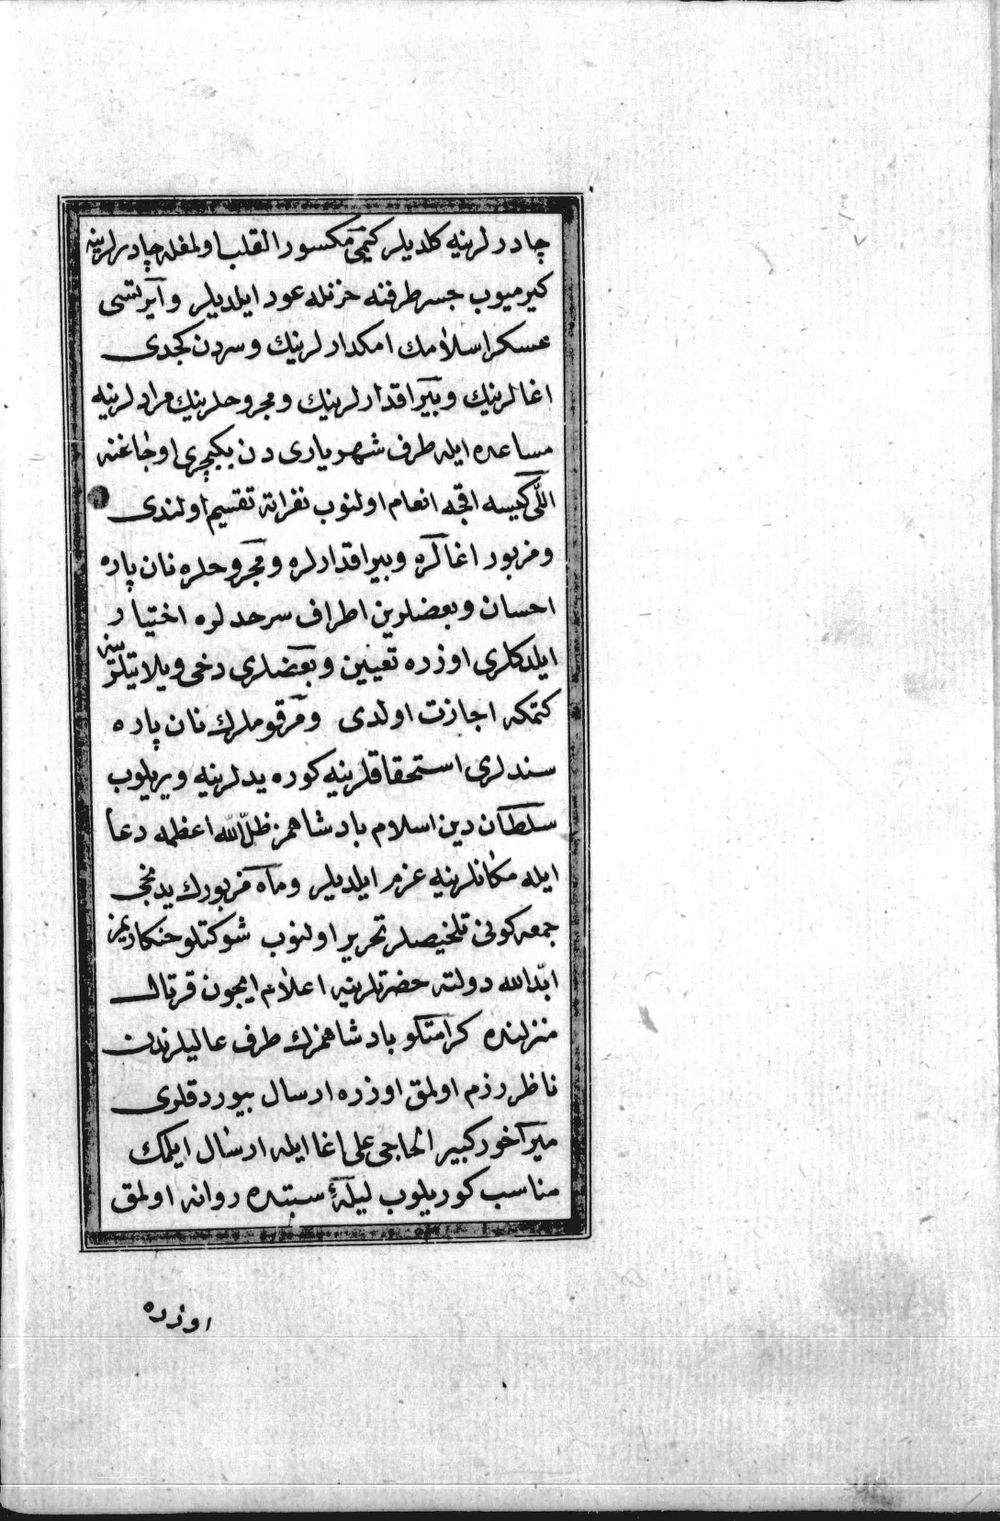 چادرلرينه كلديلر كيمى مكسور القلب اولمغله چادرلرينه
كيرميوب جسر طرفنه حزنله عود ايلديلر و آيرتسى
عسكر اسلامك امكدارلرينك و سردن كچدى
اغالرينك و بيراقدارلرينك و مجروحلرينك مرادلرينه
مساعده ايله طرف شهريارى دن يكيچرى اوجاغنه
اللى كيسه اقچه انعام اولنوب نفراته تقسيم اولندى
و مزبور اغالره و بيراقدارلره و مجروحلره نان پاره
احسان و بعضلرين اطراف سرحدلره اختيار
ايلدكلرى اوزره تعيين و بعضلرى دخى ويلايتلرينه
كتمكه اجازت اولدى و مرقوملرك نان پاره
سندلرى استحقاقلرينه كوره يدلرينه ويريلوب
سلطان دين اسلام پادشاهمز ظل الله اعظمه دعا
ايله مكانلرينه عزم ايلديلر و ماه مزبورك يدنجى
جمعه كونى تلخيصلر تحرير اولنوب شوكتلو خنكاريمز
ابّد الله دولته حضرتلرينه اعلام ايچون قرتال
منزلنده كرامتلو پادشاهمزك طرف عاليلرندن
ناظر رزم اولمق اوزره ارسال بيوردقلرى
ميرآخور كبير الحاجى على اغا ايله ارسال ايلمك
مناسب كوريلوب ليلهٔ سبتده روانه اولمق
اوزره